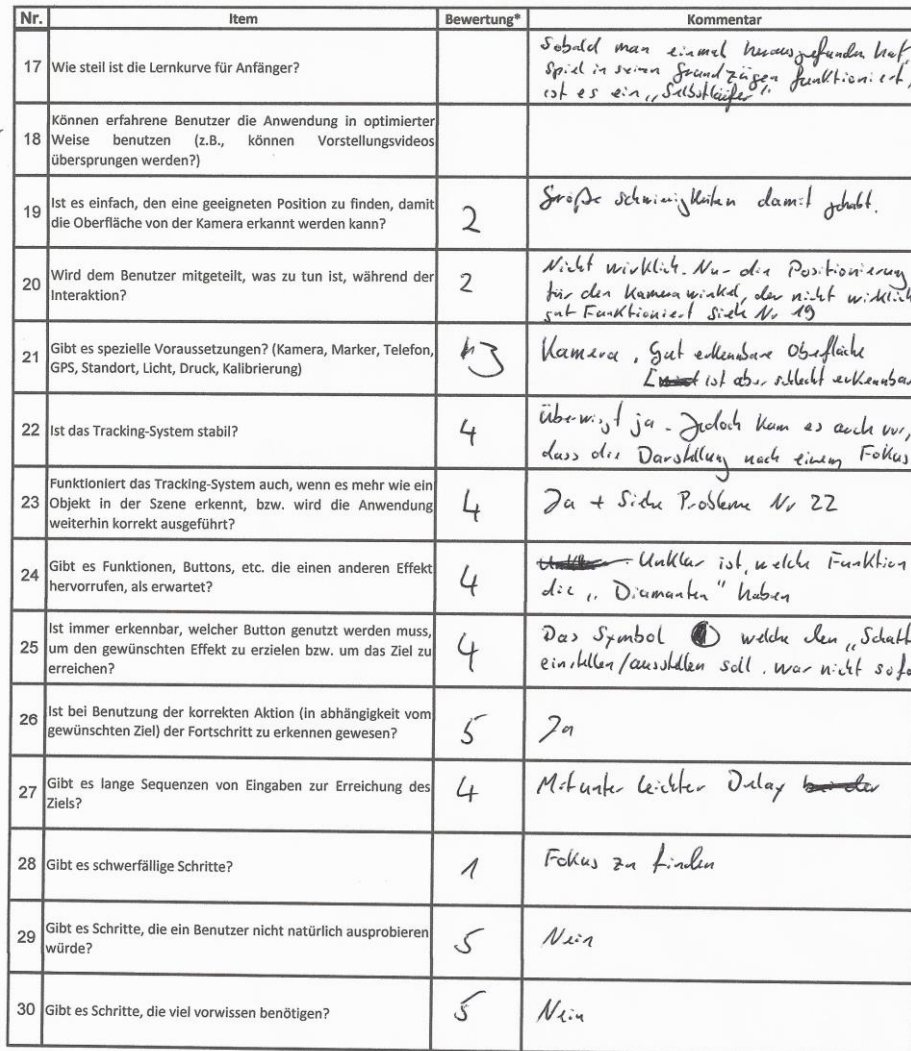 Nr. Item Bewertung* Kommentar
17 Wie steil ist die Lernkurve für Anfänger?
Sobald man einmal herausgefunden hat,
Spiel in seinen Grundzügen funktioniert,
ist es ein „Selbstläufer"
18 Können erfahrene Benutzer die Anwendung in optimierter
Weise benutzen (z.B., können Vorstellungsvideos
übersprungen werden?)
19 Ist es einfach, den eine geeigneten Position zu finden, damit
die Oberfläche von der Kamera erkannt werden kann?
2
Große schwierigkeiten damit gehabt.
20 Wird dem Benutzer mitgeteilt, was zu tun ist, während der
Interaktion?
2
Nicht wirklich. Nur die Positionierung
für den Kamerawinkel, der nicht wirklich
gut Funktioniert Siehe Nr 19
21 Gibt es spezielle Voraussetzungen? (Kamera, Marker, Telefon,
GPS, Standort, Licht, Druck, Kalibrierung)
3
Kamera, Gut erkennbare Oberfläche
ist aber schlecht erkennbar
22 Ist das Tracking-System stabil?
4
Überwiegt ja. Jedoch kam es auch vor,
dass die Darstellung nach einem Fokus
23 Funktioniert das Tracking-System auch, wenn es mehr wie ein
Objekt in der Szene erkennt, bzw. wird die Anwendung
weiterhin korrekt ausgeführt?
4
Ja + Siehe Probleme Nr 22
24 Gibt es Funktionen, Buttons, etc. die einen anderen Effekt
hervorrufen, als erwartet?
4
Unklar ist, welche Funktion
die „Diamanten" haben
25 Ist immer erkennbar, welcher Button genutzt werden muss,
um den gewünschten Effekt zu erzielen bzw. um das Ziel zu
erreichen?
4
Das Symbol welche den „Schatt
einstellen/ausstellen soll, war nicht sofo
26 Ist bei Benutzung der korrekten Aktion (in abhängigkeit vom
gewünschten Ziel) der Fortschritt zu erkennen gewesen?
5
Ja
27 Gibt es lange Sequenzen von Eingaben zur Erreichung des
Ziels?
4
Mitunter leichter Delay
28 Gibt es schwerfällige Schritte?
1
Fokus zu finden
29 Gibt es Schritte, die ein Benutzer nicht natürlich ausprobieren
würde?
5
Nein
30 Gibt es Schritte, die viel vorwissen benötigen?
5
Nein